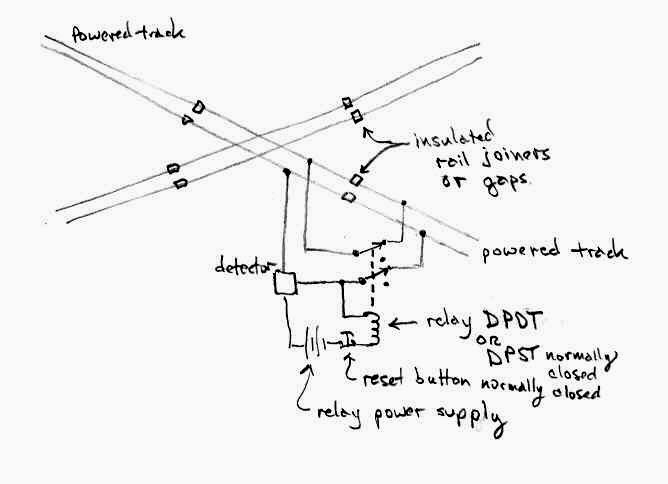 Powered track
insulated
rail joiners
or gaps.
powered track
detector
relay DPDT
OR
DPST normally
closed
reset button normally closed
relay power supply